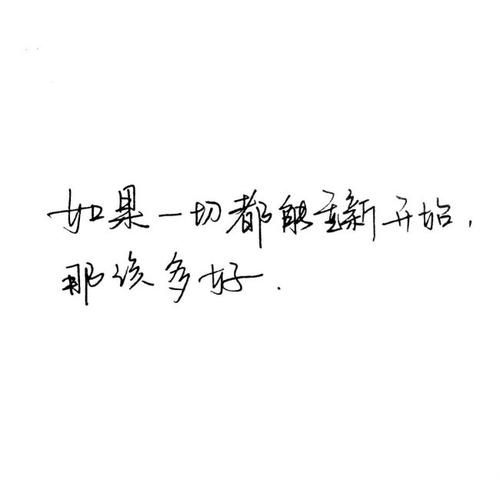 如果一切都能重新开始，
那该多好.